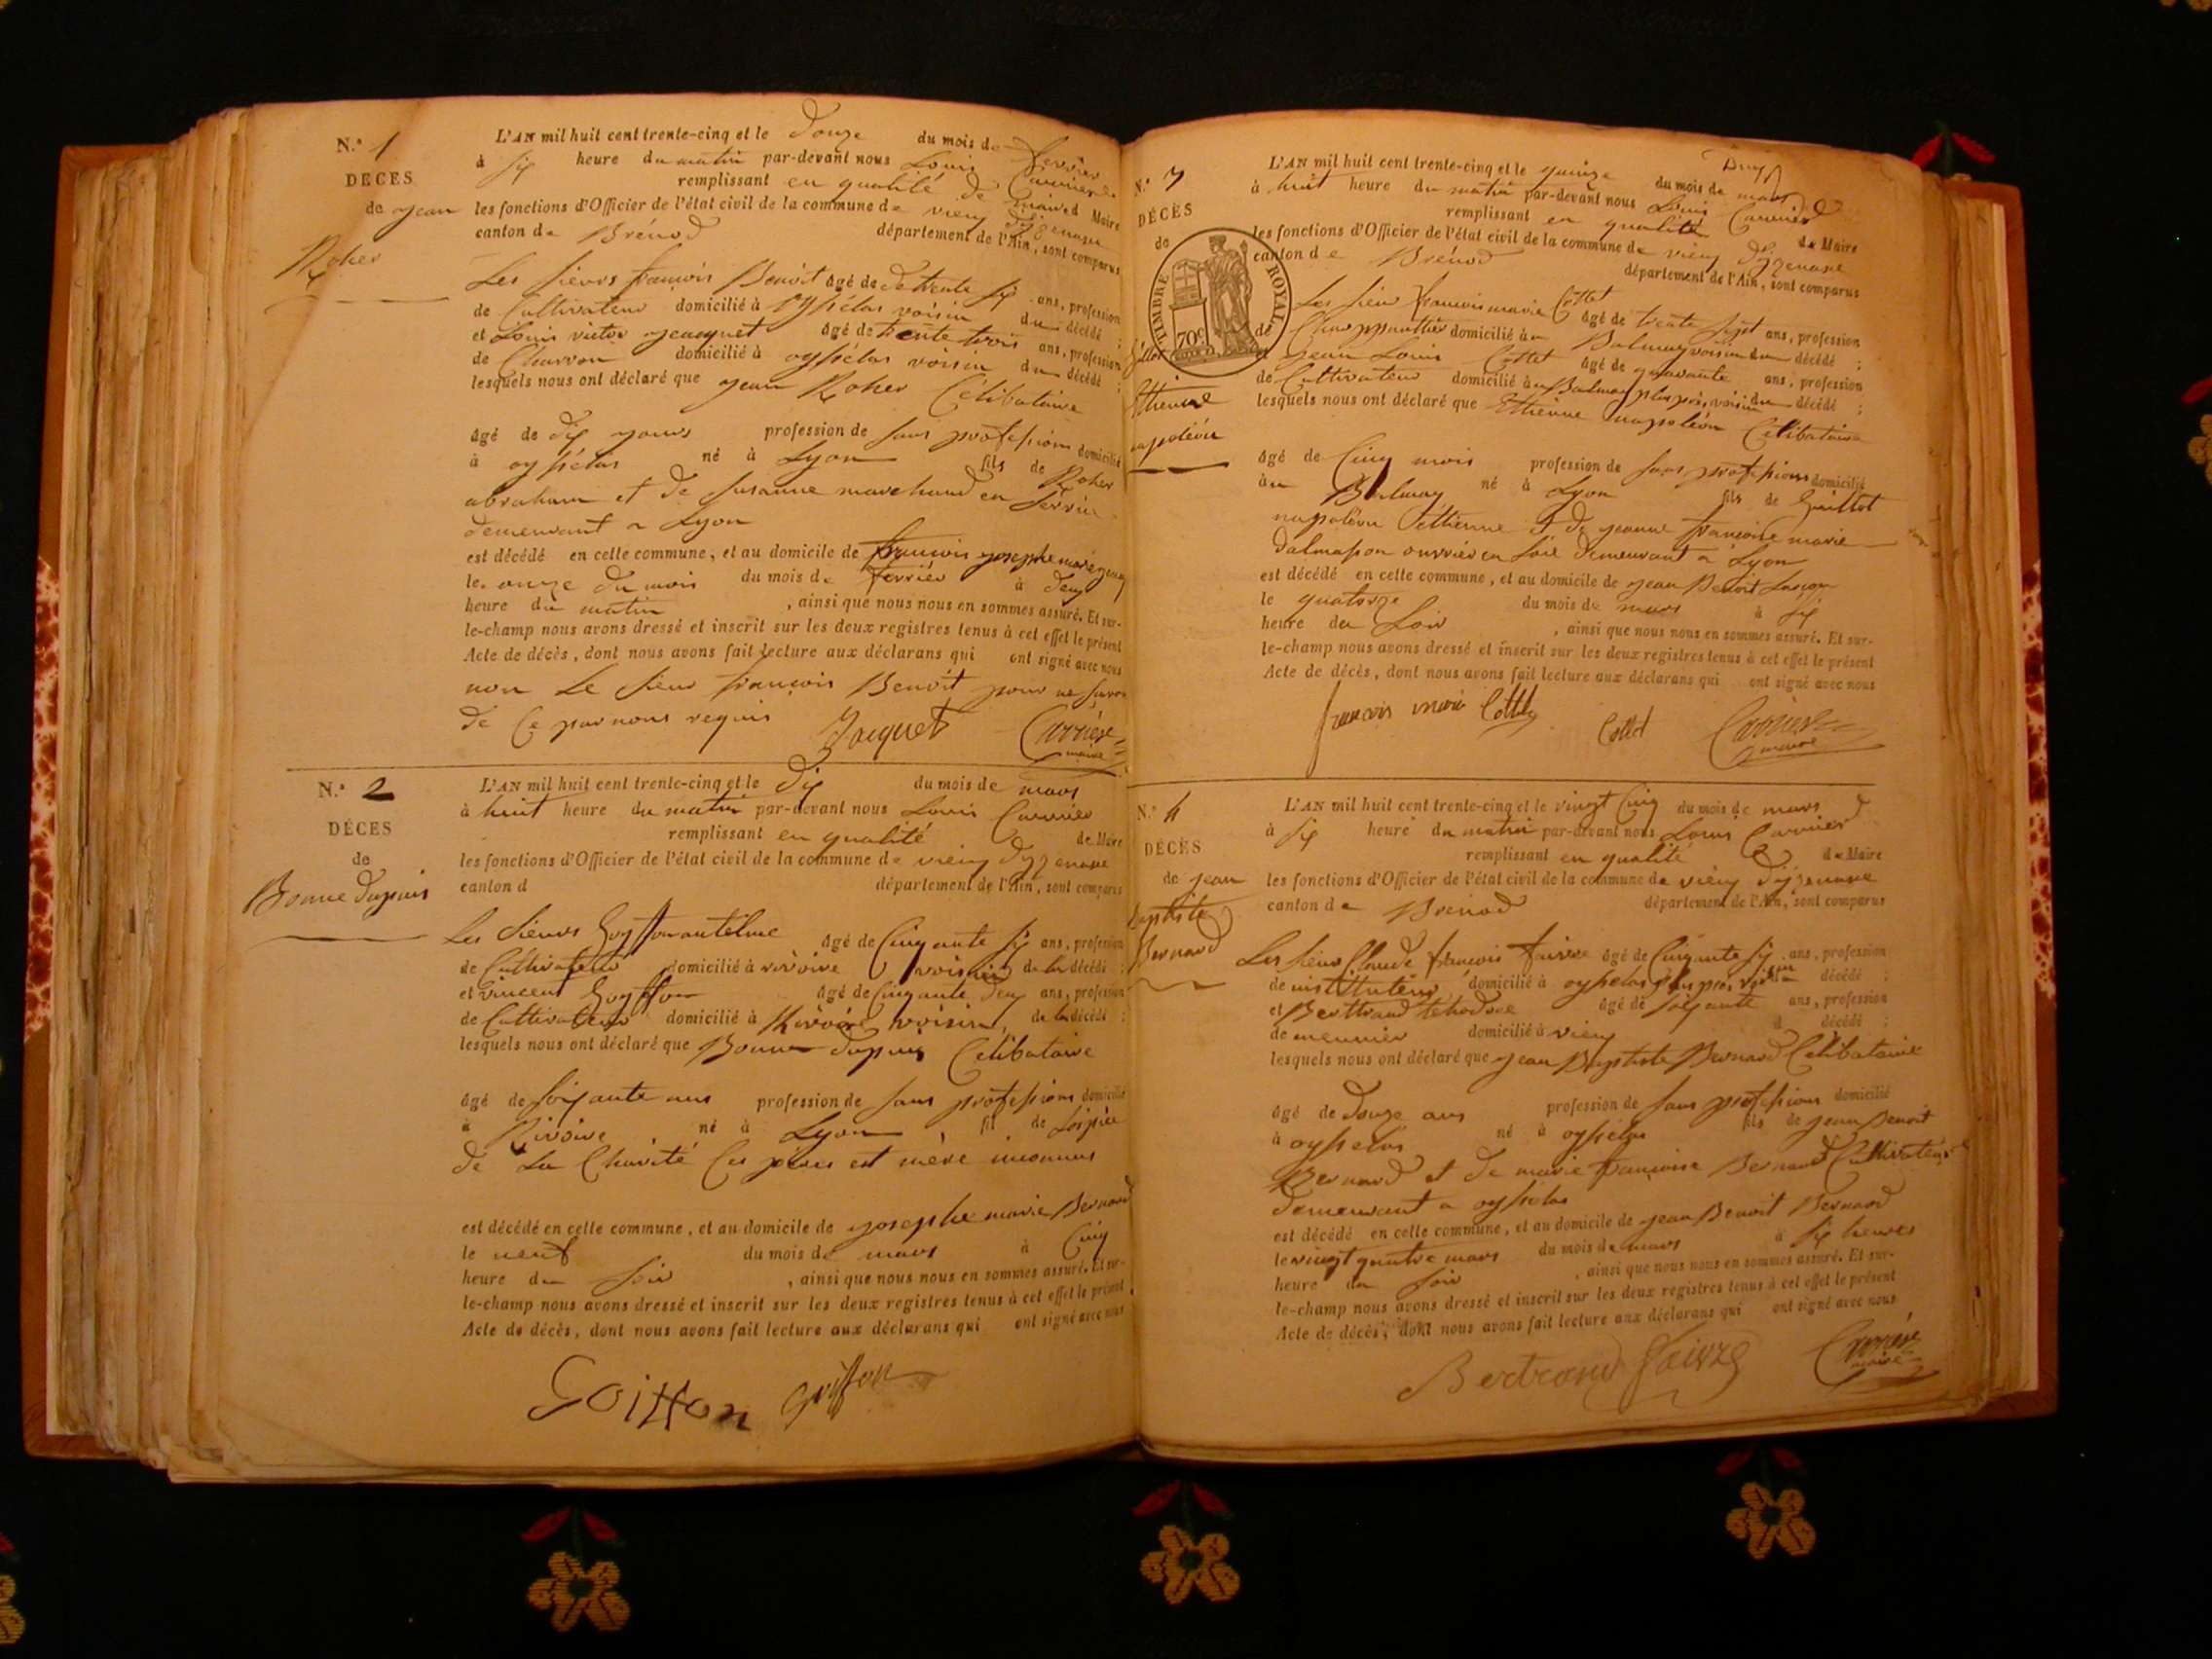 N.° 1
DÉCES
de jean
Roher
L'AN mil huit cent trente-cinq et le Douze du mois de fevrier
à six heure du matin par-devant nous Louis Carrier
remplissant en qualité de Maire
les fonctions d'Officier de l'état civil de la commune de vieu Dizenave
canton de Brénod département de l'Ain, sont comparus
Les sieurs françois Benoit âgé de trente six ans, profession
de Cultivateur domicilié à oysselas voisin du décédé ;
et Louis victor jeacquet âgé de trente trois ans, profession
de Charron domicilié à oysselas voisin du décédé ;
lesquels nous ont déclaré que jean Roher Célibataire
âgé de dix jours profession de sans profession domicilié
à oysselas né à Lyon fils de Roher
abraham et de susanne marchand en
demeurant a Lyon
est décédé en cette commune, et au domicile de françois josephe
le onze du mois du mois de fevrier à deux
heure du matin , ainsi que nous nous en sommes assuré. Et sur-
le-champ nous avons dressé et inscrit sur les deux registres tenus à cet effet le présent
Acte de décès, dont nous avons fait lecture aux déclarans qui ont signé avec nous
non Le sieur françois Benoit pour ne savoir
de Ce par nous requis Jacquet Carrier
maire
N.° 2
DÉCES
de
Bonne dupuis
L'AN mil huit cent trente-cinq et le dix du mois de mars
à huit heure du matin par-devant nous Louis Carrier
remplissant en qualité de Maire
les fonctions d'Officier de l'état civil de la commune de vieu Dizenave
canton d département de l'Ain, sont comparus
Les Sieurs Goyffon antelme âgé de Cinquante six ans, profession
de Cultivateur domicilié à rivoire voisin de la décédé ;
et vincent Goyffon âgé de Cinquante deux ans, profession
de Cultivateur domicilié à Rivoire voisin, de la décédé ;
lesquels nous ont déclaré que Bonne dupuis Célibataire
âgé de soixante ans profession de sans profession domicilié
à Rivoire né à Lyon fil de
de La Charité Ces pères et mère inconnus
est décédé en cette commune, et au domicile de josephe marie Bernard
le neuf du mois de mars à Cinq
heure du soir , ainsi que nous nous en sommes assuré. Et sur-
le-champ nous avons dressé et inscrit sur les deux registres tenus à cet effet le présent
Acte de décès, dont nous avons fait lecture aux déclarans qui ont signé avec nous
Goiffon Goiffon
N.° 3
DÉCÈS
de
Ettienne
napoléon
TIMBRE ROYAL
70c
L'AN mil huit cent trente-cinq et le quinze du mois de mars
à huit heure du matin par-devant nous Louis Carrier
remplissant en qualité de Maire
les fonctions d'Officier de l'état civil de la commune de vieu Dizenave
canton de Brénod département de l'Ain, sont comparus
Les sieur françois marie Cottet âgé de trente sept ans, profession
de domicilié au Balmay voisin du décédé ;
et Jean Louis Cottet âgé de quarante ans, profession
de Cultivateur domicilié au Balmay plus près voisin du décédé ;
lesquels nous ont déclaré que Ettienne napoléon Célibataire
âgé de Cinq mois profession de sans profession domicilié
au Balmay né à Lyon fils de Guillot
napoléon ettienne et de jeanne françoise marie
dalmasson ouvrier en soie demeurant a Lyon
est décédé en cette commune, et au domicile de jean Benoit
le quatorze du mois de mars à six
heure du soir , ainsi que nous nous en sommes assuré. Et sur-
le-champ nous avons dressé et inscrit sur les deux registres tenus à cet effet le présent
Acte de décès, dont nous avons fait lecture aux déclarans qui ont signé avec nous
francois marie Cottet Cottet Carrier
maire
N.° 4
DÉCÈS
de jean
baptiste
Bernard
L'AN mil huit cent trente-cinq et le vingt Cinq du mois de mars
à six heure du matin par-devant nous Louis Carrier
remplissant en qualité de Maire
les fonctions d'Officier de l'état civil de la commune de vieu Dizenave
canton de Brénod département de l'Ain, sont comparus
Les sieur Claude françois faivre âgé de Cinquante six ans, profession
de instituteur domicilié à oysselas plus près voisin décédé ;
et Berttrand âgé de soixante ans, profession
de meunier domicilié à vieu d décédé ;
lesquels nous ont déclaré que jean Baptiste Bernard Célibataire
âgé de Douze ans profession de sans profession domicilié
à oysselas né à oysselas fils de jean Benoit
Bernard et de marie françoise Bernard Cultivateur
demeurant a oysselas
est décédé en cette commune, et au domicile de jean Benoit Bernard
le vingt quatre mars du mois de mars à six heures
heure du soir , ainsi que nous nous en sommes assuré. Et sur-
le-champ nous avons dressé et inscrit sur les deux registres tenus à cet effet le présent
Acte de décès, dont nous avons fait lecture aux déclarans qui ont signé avec nous
Bertrand faivre Carrier
maire